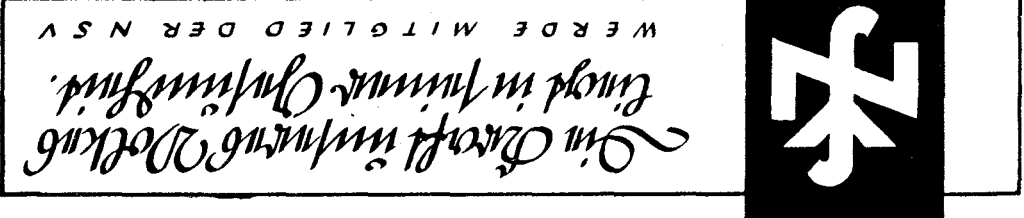 Die Kraft unseres Volkes
liegt in seiner Gesundheit.
WERDE MITGLIED DER NSV